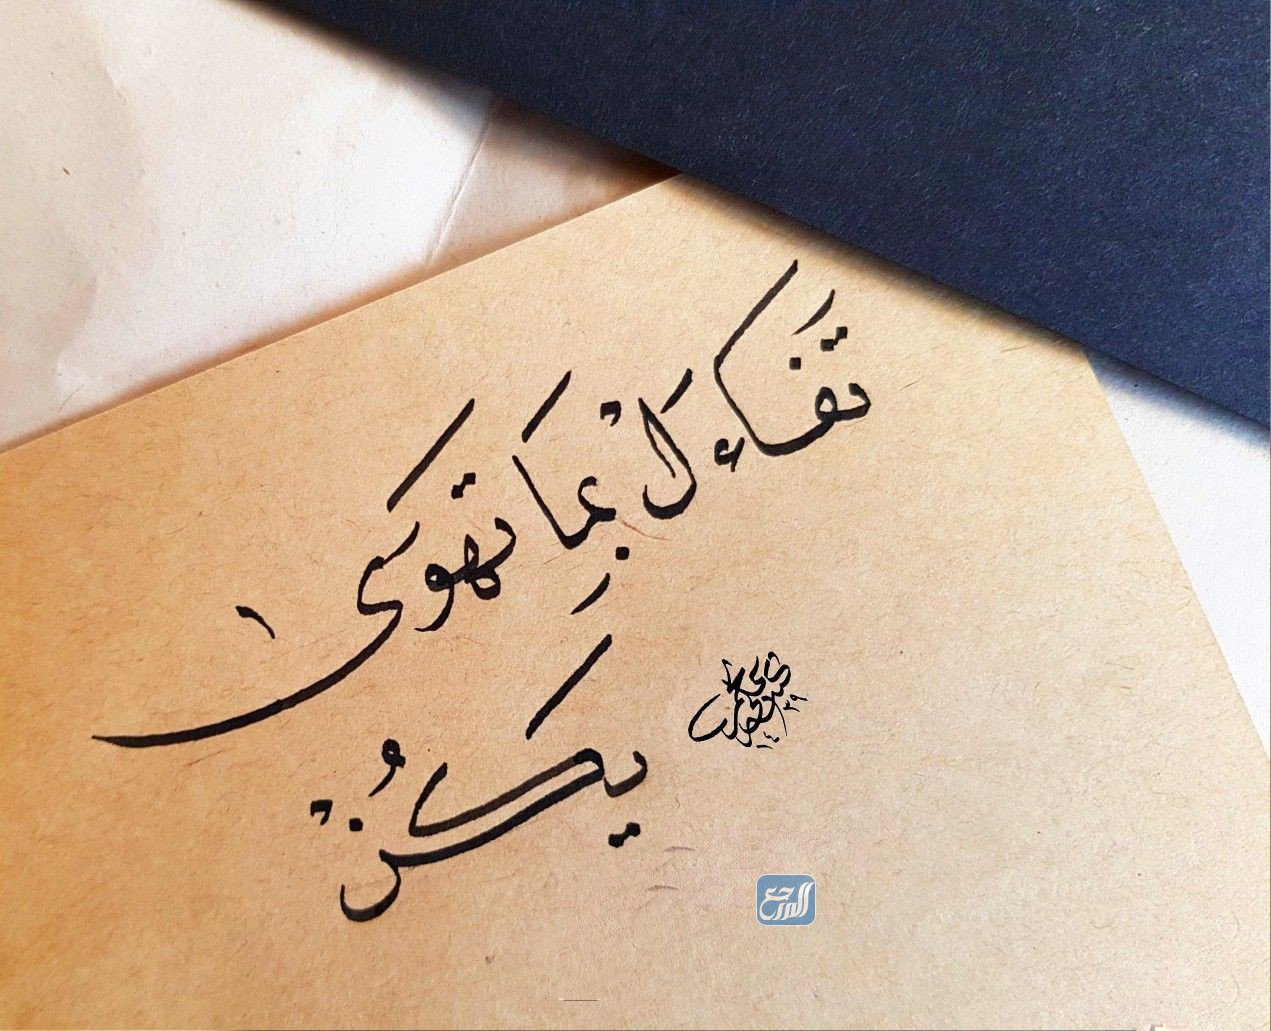 تفاءلْ بِمَا تهوَى
يكُنْ
المرجع